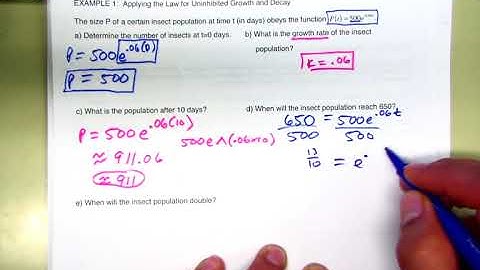 EXAMPLE 1: Applying the Law for Uninhibited Growth and Decay
The size P of a certain insect population at time t (in days) obeys the function P(t) = 500e^.06t
a) Determine the number of insects at t=0 days.
P = 500e^.06(0)
P = 500
b) What is the growth rate of the insect
population?
k = .06
c) What is the population after 10 days?
P = 500e^.06(10)
500e^(.06×10)
≈ 911.06
≈ 911
d) When will the insect population reach 650?
650/500 = 500e^.06t/500
13/10 = e^.
e) When will the insect population double?